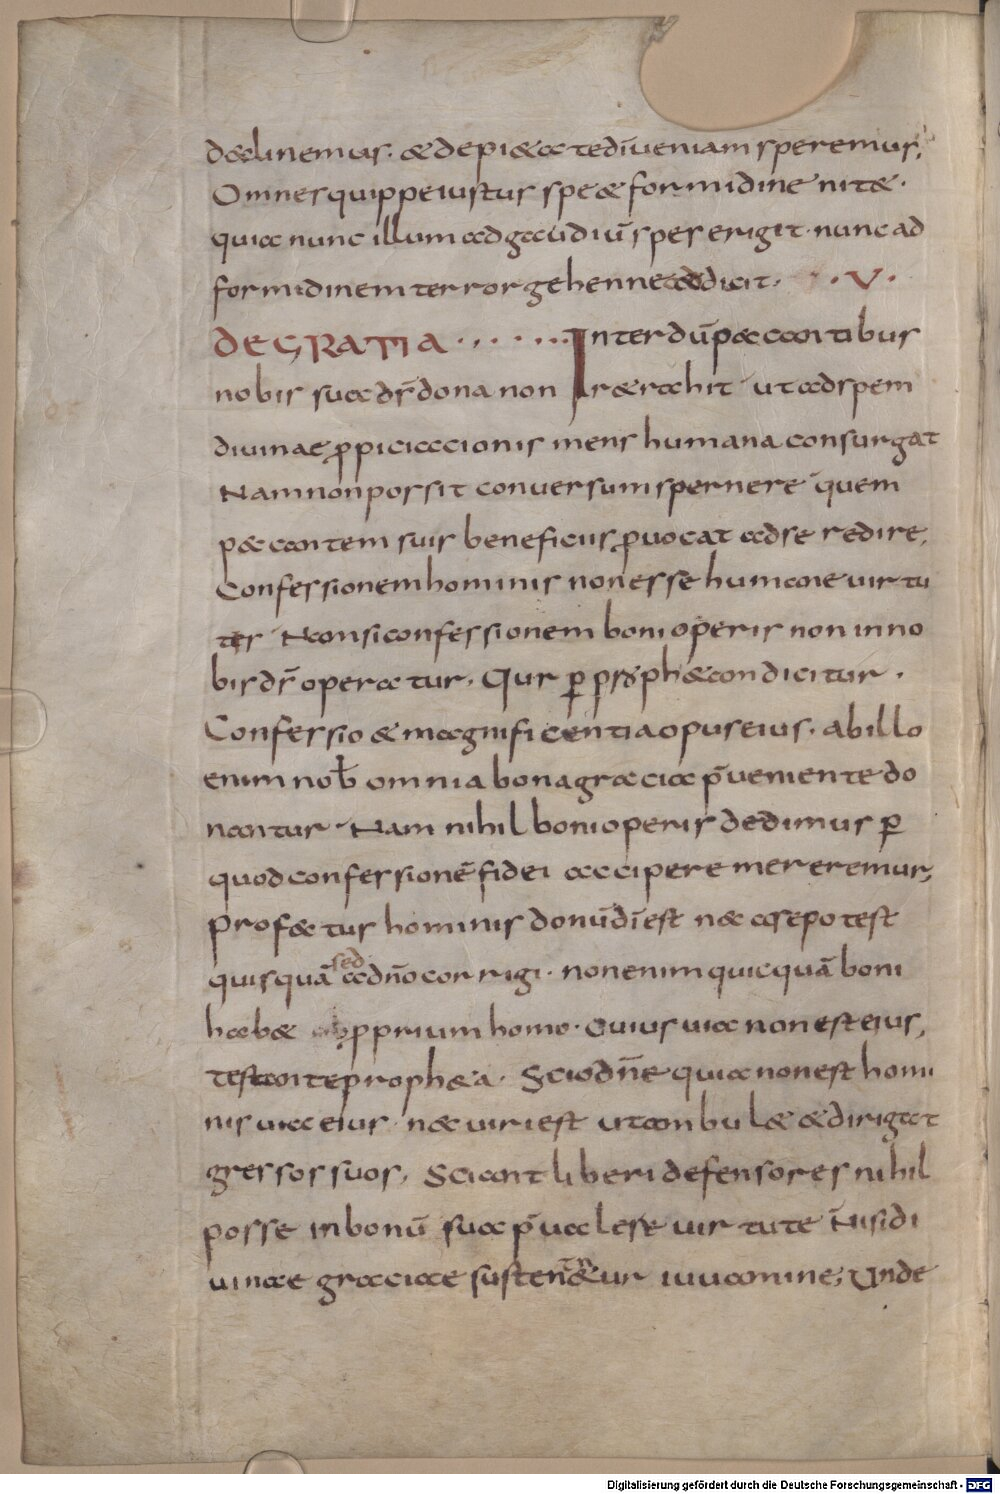 declinemus. et de pietate dī veniam speremus;
Omnes quippe iustus spe et formidine nitet.
quia nunc illum ad gaudiū spes erigit. nunc ad
formidinem terror gehennae addicit. . . V .
DE GRATIA . . . . . . . Interdū peccantibus
nobis sua ds̄ dona non retrahit ut ad spem
divinae ꝓpiciacionis mens humana consurgat
Nam non possit conversum spernere quem
peccantem suis beneficiis ꝓvocat ad se redire;
Confessionem hominis non esse humane virtu
tes Nam si confessionem boni operis non in no
bis ds̄ operatur. Qur ꝑ prophetam dicitur .
Confessio et magnificentia opus eius. ab illo
enim nob̄ omnia bona gracia p̄veniente do
nantur. Nam nihil boni operis dedimus ꝑ
quod confessionē fidei accipere mereremur;
profectus hominis donū dī est nec a se potest
quisquā sed a dn̄o corrigi. non enim quicquā boni
habet pprium homo. Cuius via non est eius,
testante propheta. Scio dn̄e quia non est homi
nis via eius. nec viri est ut ambulet et dirigat
gressos suos, Sciant liberi defensores nihil
posse in bonū sua p̄valese virtute Nisi di
vinae graciae sustentetur iuvamine; Unde
Digitalisierung gefördert durch die Deutsche Forschungsgemeinschaft - DFG